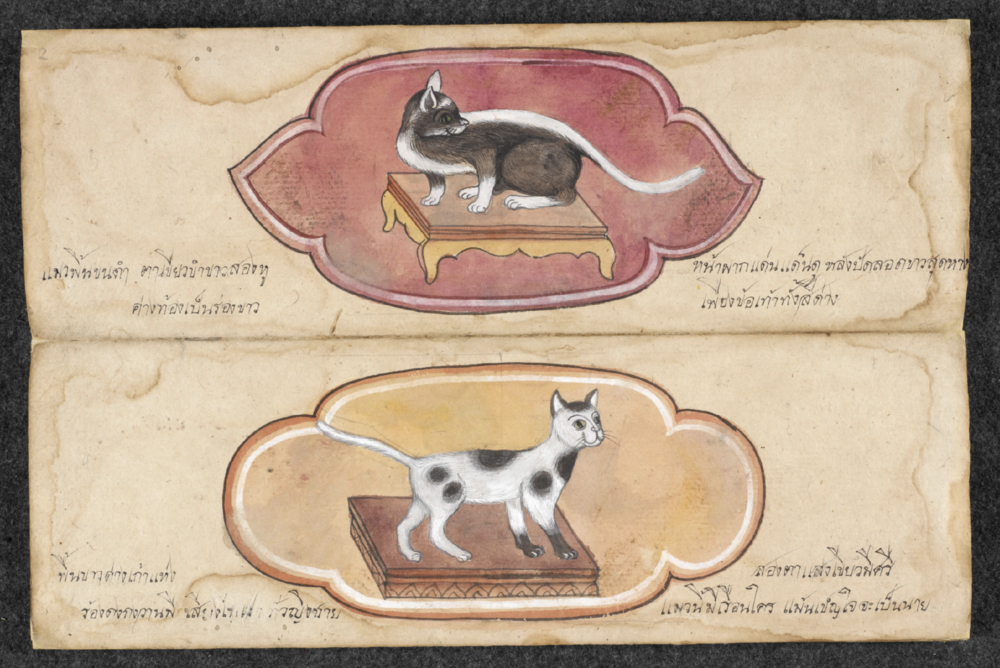 แมวพื้นขนดำ ตาเขียวขำขาวสองหู
หน้าผากแด่นเด็นดู หลังปัดลอดขาวสุดหาง
ค่างท้องเป็นร่องขาว
เพียงข้อเท้าทั้งสี่ด่าง
พื้นขาวด่างเก้าแห่ง
สองตาแสงเขียวมีศรี
ร้องกงกงวานมี เสียง ญิงชาย
แมวนี้มีเรือนใคร แม้นเข็ญใจจะเป็นนาย